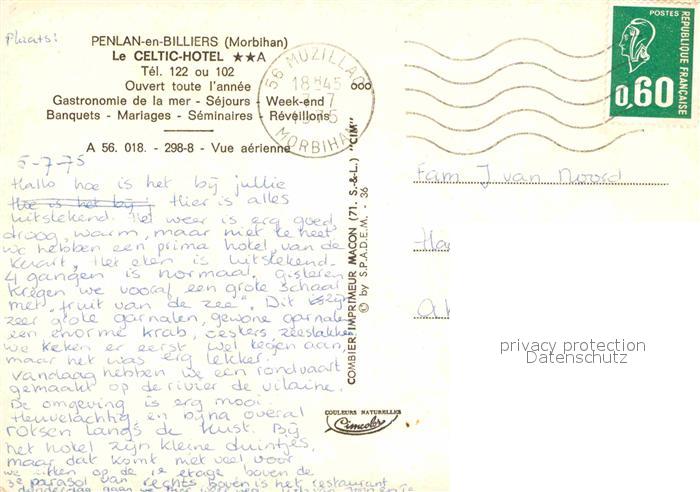 Plaats:
PENLAN-en-BILLIERS (Morbihan)
Le CELTIC-HOTEL ★★A
Tél. 122 ou 102
Ouvert toute l'année
Gastronomie de la mer - Séjours - Week-end
Banquets - Mariages - Séminaires - Réveillons
A 56. 018. - 298-8 - Vue aérienne
5-7-75
Hallo hoe is het bij jullie
Hoe is het bij Hier is alles
uitstekend. Het weer is erg goed
droog, warm, maar niet te heet
we hebben een prima hotel van de
kaart, Het eten is uitstekend.
4 gangen is normaal, gisteren
kregen we vooraf een grote schaal
met "fruit van de zee". Dit zijn
zeer grote garnalen, gewone garnalen
een enorme krab, oesters zeeslakken
we keken er eerst wel tegen aan,
maar het was erg lekker.
Vandaag hebben we een rondvaart
gemaakt op de rivier de vilaine.
De omgeving is erg mooi.
Heuvelachtig en bijna overal
rotsen langs de kust. Bij
het hotel zijn kleine duintjes,
maar dat komt met veel voor
we zitten op de 1e etage boven de
3e parasol van rechts boven is het restaurant
donderdag gaan we hier weer weg
56 MUZILLAC
18H45
7
MORBIHAN
COMBIER IMPRIMEUR MACON (71. S.-&-L.) "CIM"
© by S.P.A.D.E.M. - 36
POSTES
REPUBLIQUE FRANÇAISE
0,60
Fam J van Noord
privacy protection
Datenschutz
COULEURS NATURELLES
Cimcolor